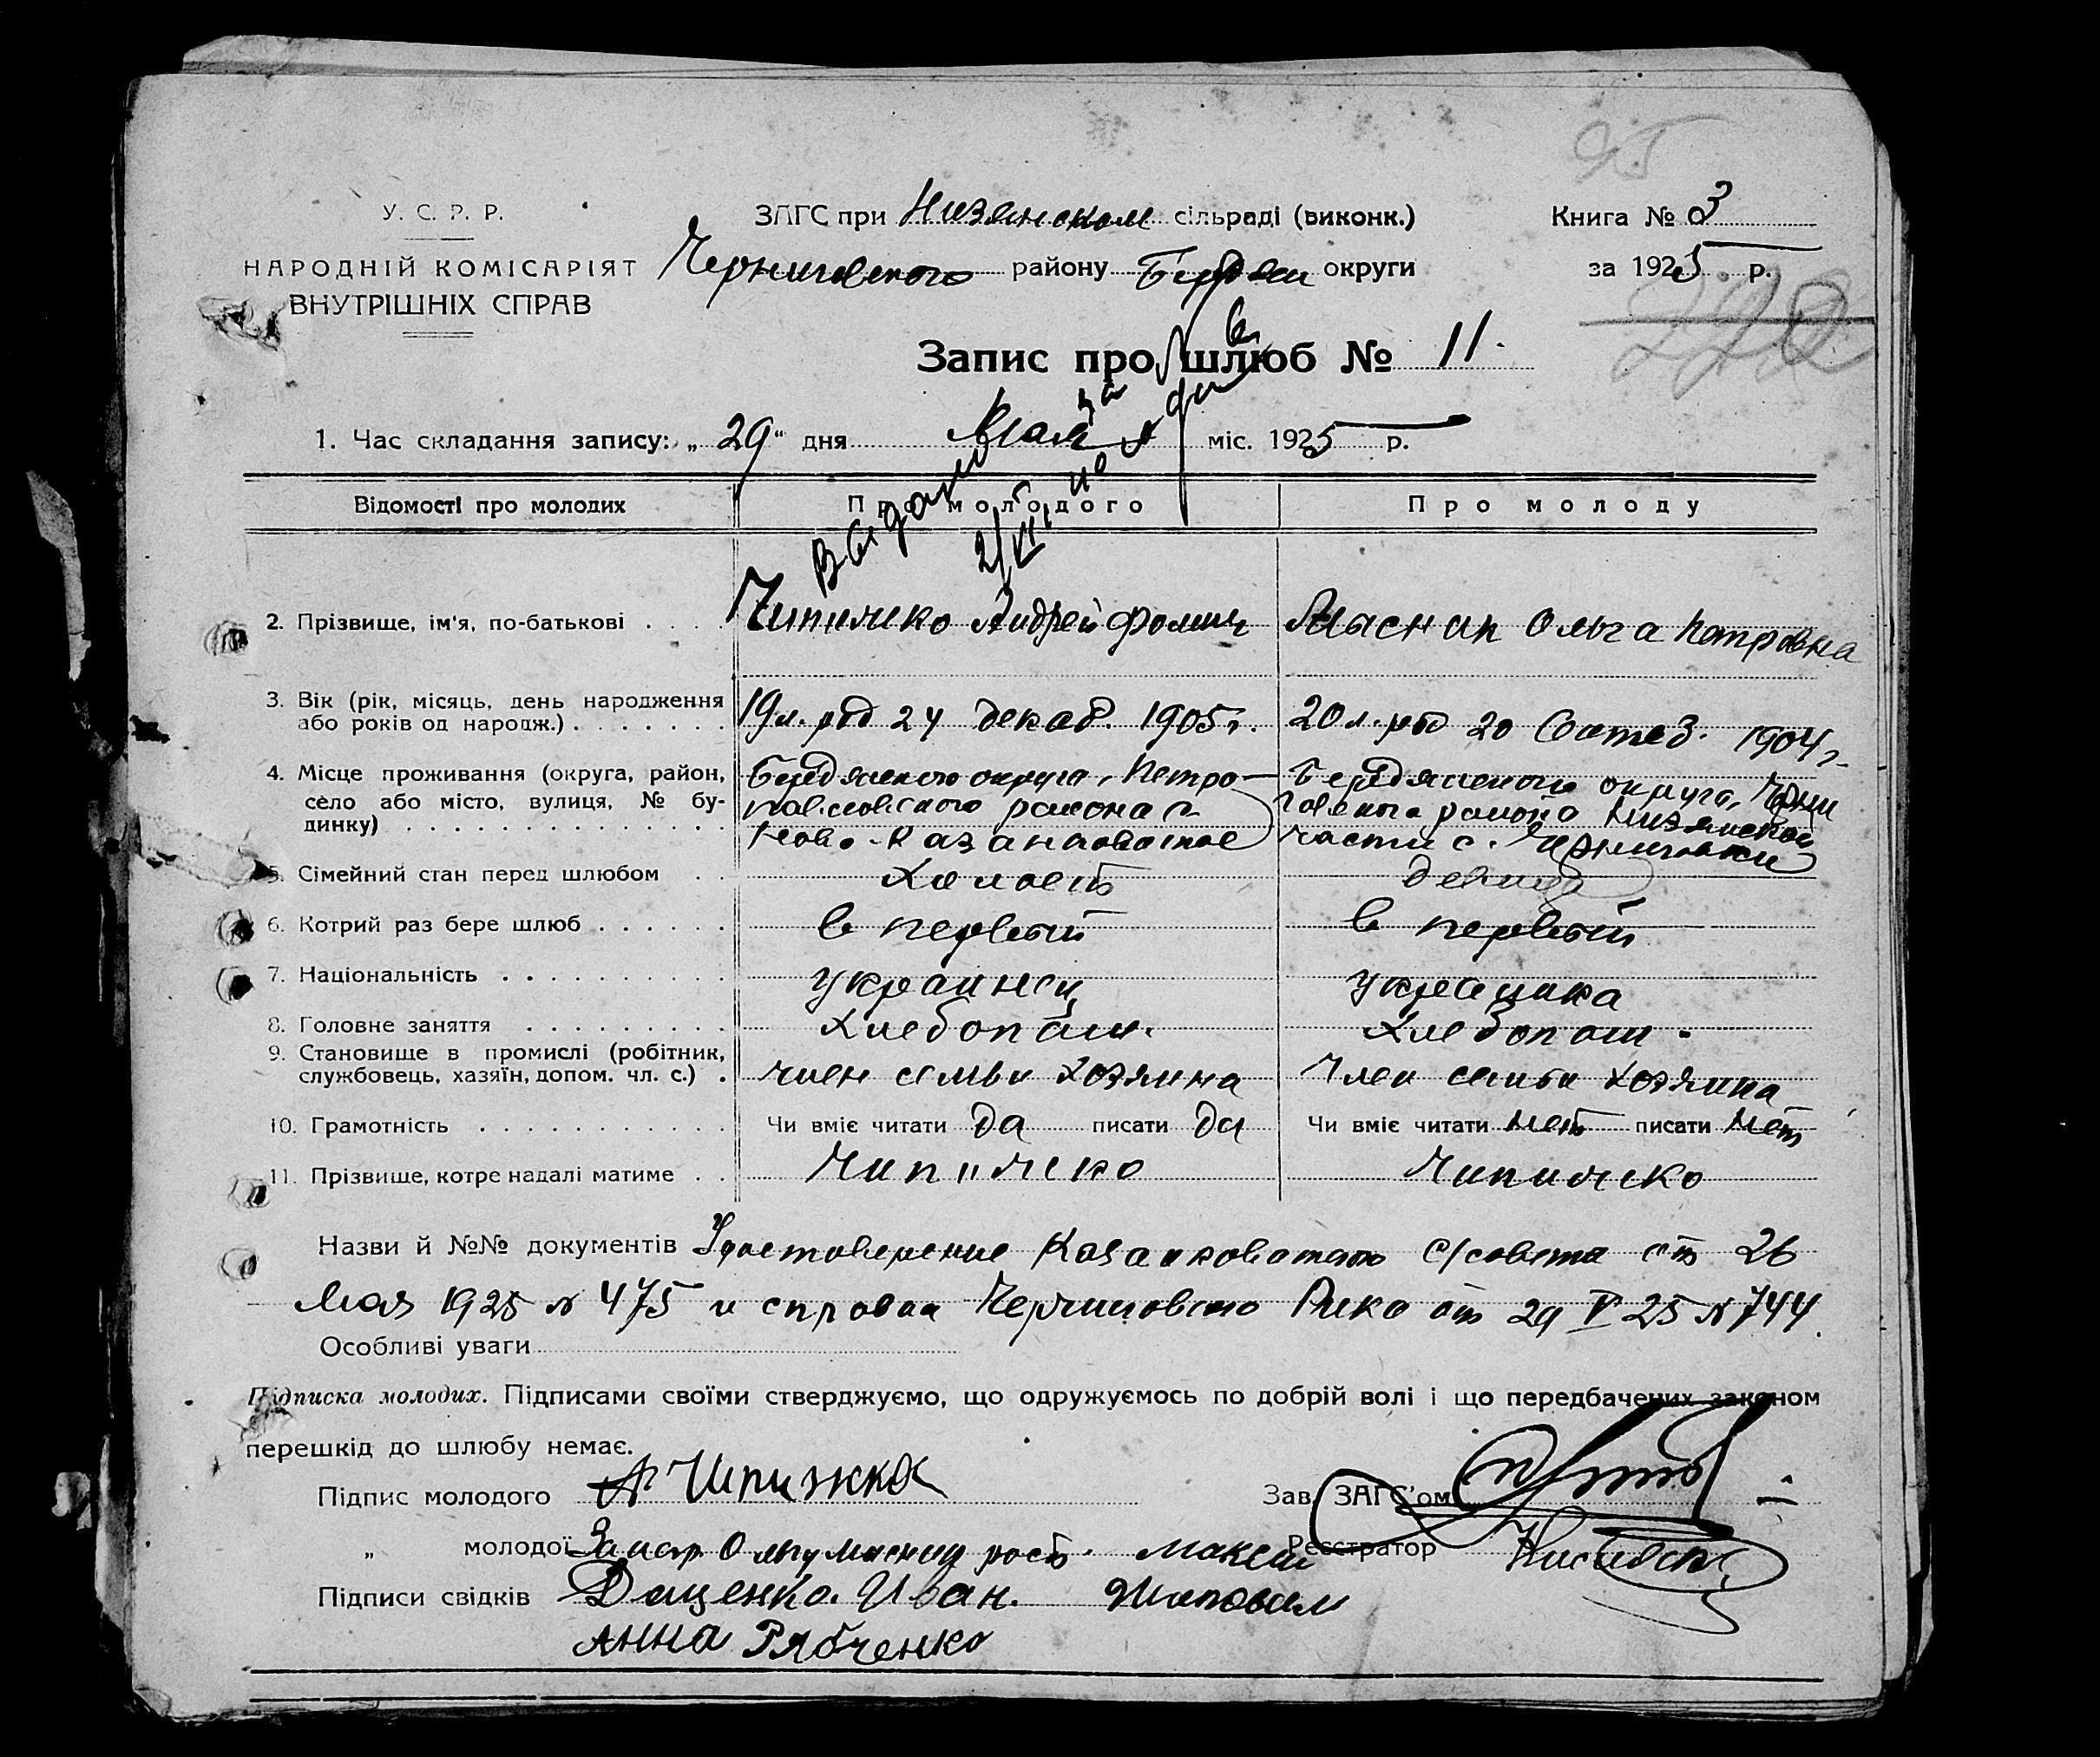 95
У. С. Р. Р.
ЗАГС при Низянском сільраді (виконк.)
Книга № 3
НАРОДНІЙ КОМІСАРІЯТ
ВНУТРІШНІХ СПРАВ
Черниговского району Бердян округи
за 1925 р.
Запис про шлюб № 11.
1. Час складання запису: „29“ дня Мая міс. 1925 р.
Відомості про молодих
Про молодого
Про молоду
2. Прізвище, ім'я, по-батькові
Чипижко Андрей Фомич
Масник Ольга Петровна
3. Вік (рік, місяць, день народження або років од народж.)
19 л. род 24 декаб. 1905 г.
20 л. род 20 1904 г.
4. Місце проживання (округа, район, село або місто, вулиця, № будинку)
Бердянского округа, Петро-
павловского района с
Ново-Казанковатое
Бердянского округа, Черни
говского района Низянской
части с. Черниговки
5. Сімейний стан перед шлюбом
Холост
девица
6. Котрий раз бере шлюб
в первый
в первый
7. Національність
украинец
8. Головне заняття
Хлебопаш.
Хлебопаш.
9. Становище в промислі (робітник, службовець, хазяїн, допом. чл. с.)
член семьи хозяина
Член семьи хозяина
10. Грамотність
Чи вміє читати да писати да
Чи вміє читати нет писати нет
11. Прізвище, котре надалі матиме
Чипижко
Чипижко
Назви й №№ документів Удостоверение Казанковатого с/совета от 26
Мая 1925 № 475 и справка Черниговского Рика от 29 V 25 № 744.
Особливі уваги
Підписка молодих. Підписами своїми стверджуємо, що одружуємось по добрій волі і що передбачених законом
перешкід до шлюбу немає.
Підпис молодого А Чипижка
Зав. ЗАГС'ом
„ молодої За негр Ольгу Масник расп. Максим
Реєстратор
Підписи свідків Даценко. Иван. Шаповал
Анна Рябченко